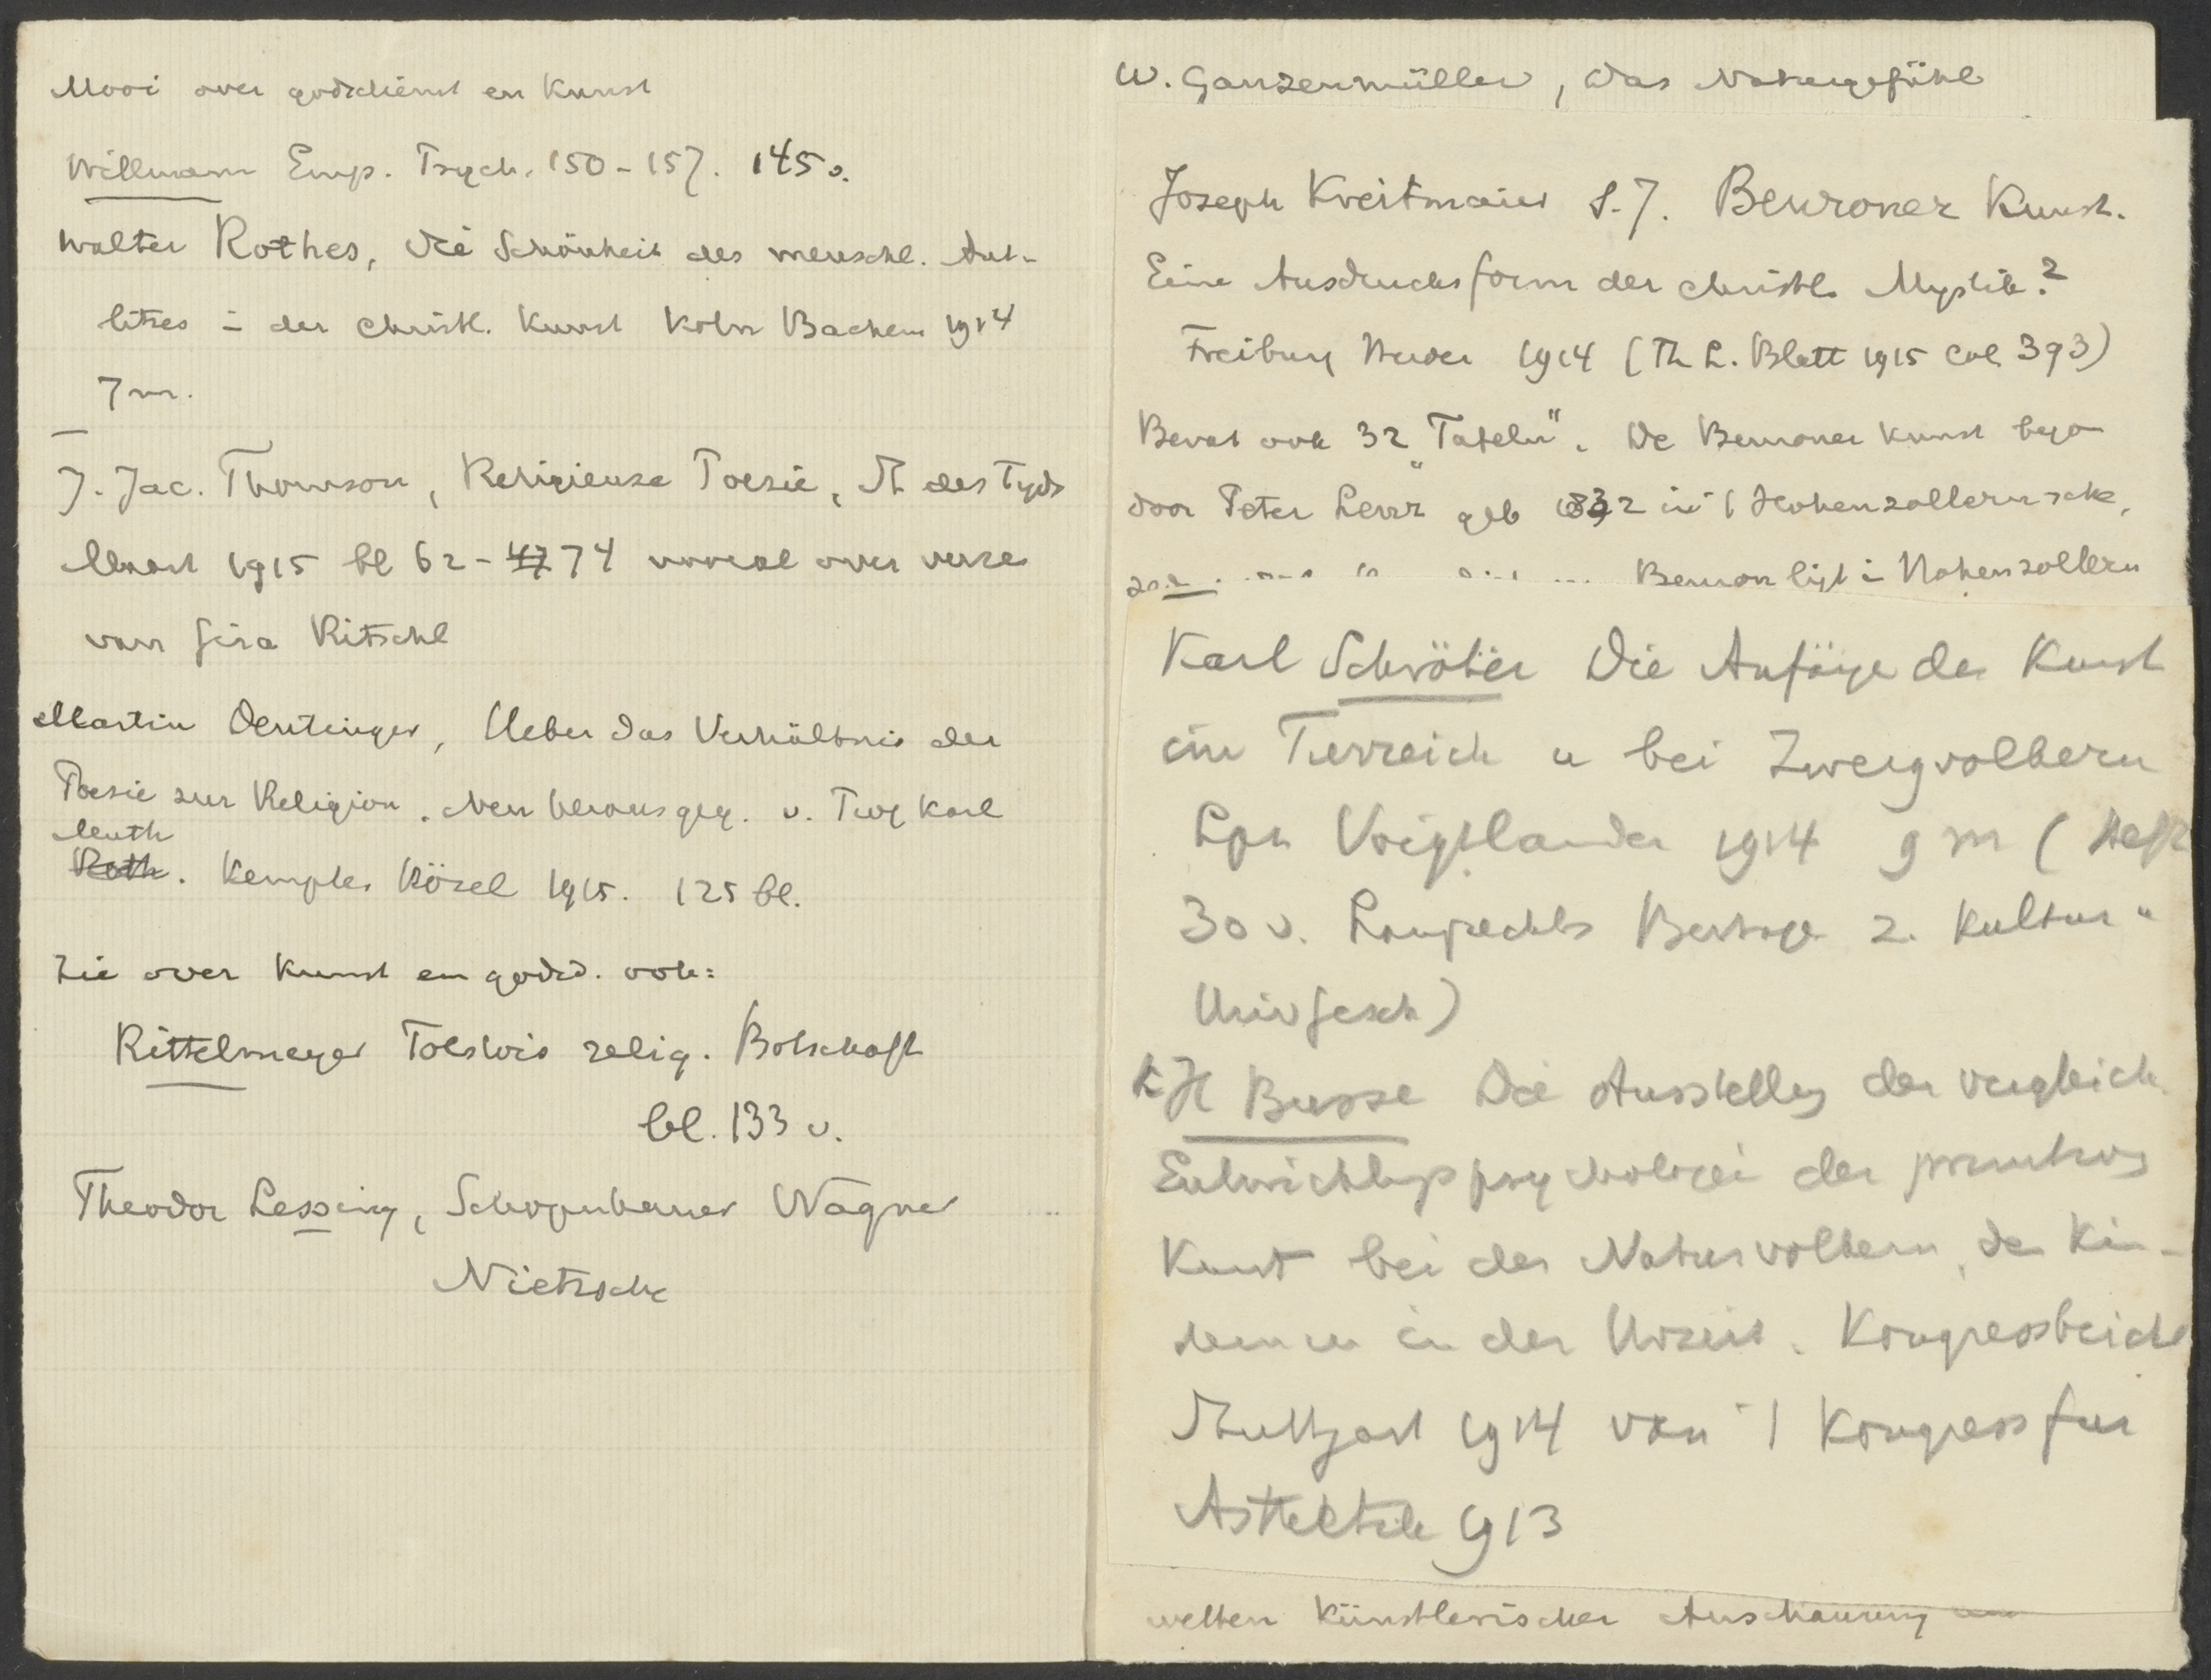 Mooi over godsdienst en Kunst
Willmann Emp. Psych. 150-157. 145 v.
Walter Rothes, Die Schönheit des menschl. Ant-
litzes i der christl. Kunst Köln Bachem 1914
7 m.
J. Jac. Thomson, Religieuse Poesie, St des Tyds
Maart 1915 bl 62-47 74 vooral over verzen
van Gira Ritschl
Martin Deutinger, Ueber das Verhältnis der
Poesie zur Religion. Neu herausgeg. v. Karl
Muth
Roth. Kempten Kösel 1915. 125 bl.
Zie over Kunst en godsd. ook:
Rittelmeyer Tolstois relig. Botschaft
bl. 133 v.
Theodor Lessing, Schopenhauer Wagner
Nietzsche
W. Ganzenmüller, Das Naturgefühl
Joseph Kreitmaier S.J. Beuroner Kunst.
Eine Ausdrucksform der christl. Mystik.2
Freiburg Herder 1914 (Th L. Blatt 1915 Col 393)
Bevat ook 32 "Tafeln". De Beuroner Kunst bego
door Peter Lenz geb 1832 in 't Hohenzollernsche,
Beuron ligt i Hohenzollern
Karl Schröter Die Anfänge der Kunst
im Tierreich u bei Zwergvolkern
Lpz Voigtlander 1914 9 m (Heft
30 v. Lamprechts Beitrage z. Kultur u
Univ Gesch)
K H Busse Die Ausstellg der vergleich
Entwicklungspsychologie der primitiven
Kunst bei den Naturvolkern, den Kin-
dern u in der Urzeit. Kongressbericht
Stuttgart 1914 van 't Kongress fur
Asthetik 1913
welten künstlerischer Anschauung